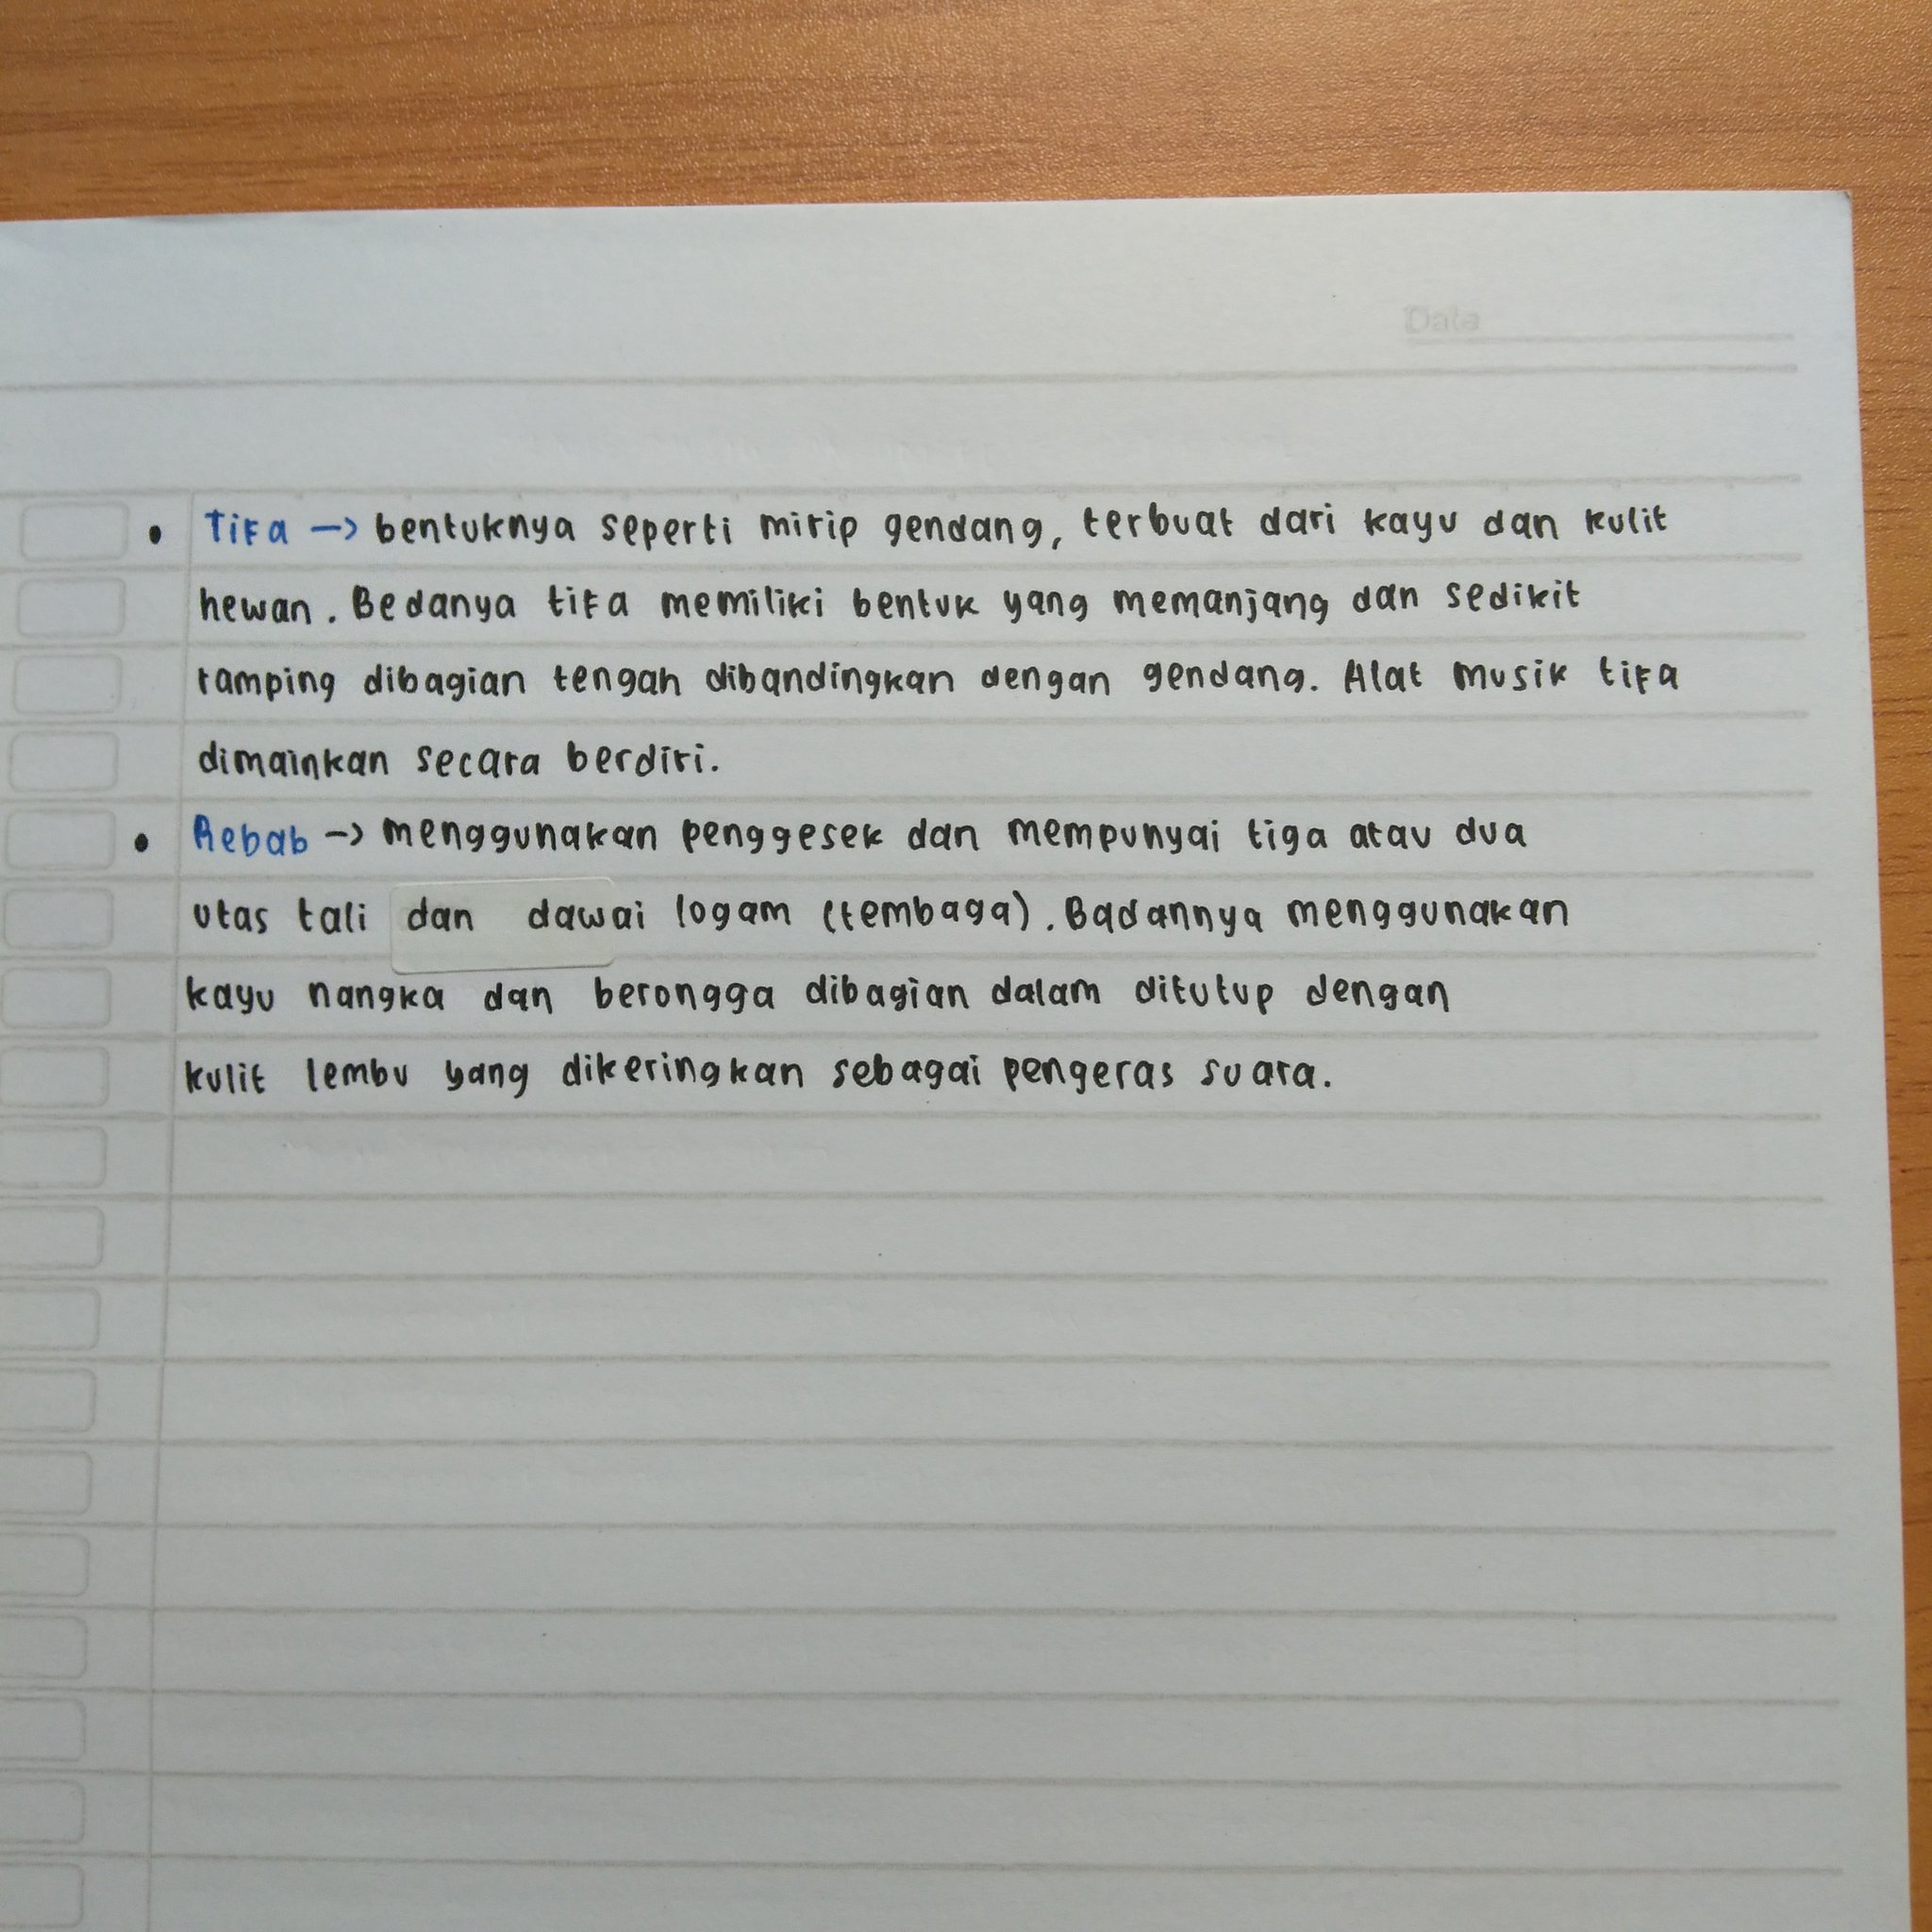 Date
• Tifa –> bentuknya seperti mirip gendang, terbuat dari kayu dan kulit
hewan. Bedanya tifa memiliki bentuk yang memanjang dan sedikit
ramping dibagian tengah dibandingkan dengan gendang. Alat musik tifa
dimainkan secara berdiri.
• Rebab –> menggunakan penggesek dan mempunyai tiga atau dua
utas tali dan dawai logam (tembaga). Badannya menggunakan
kayu nangka dan berongga dibagian dalam ditutup dengan
kulit lembu yang dikeringkan sebagai pengeras suara.